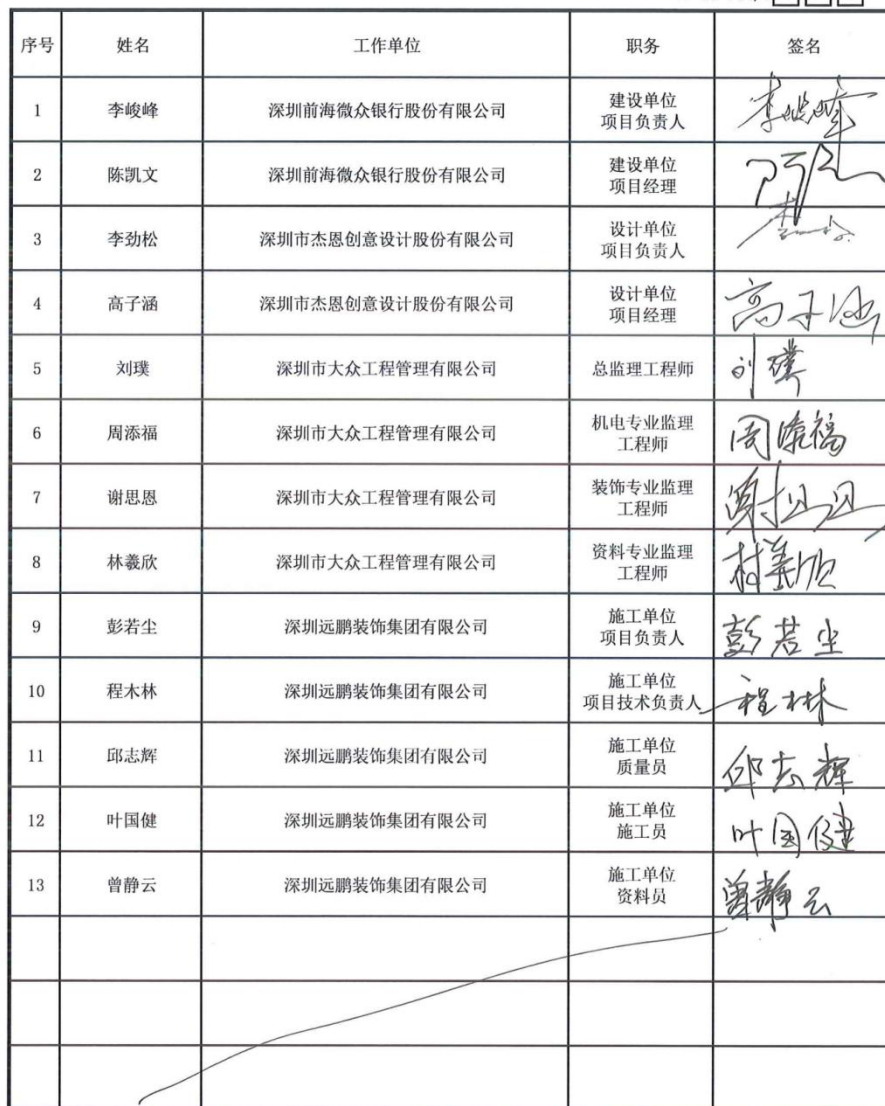 序号 姓名 工作单位 职务 签名
1 李峻峰 深圳前海微众银行股份有限公司 建设单位
项目负责人 李峻峰
2 陈凯文 深圳前海微众银行股份有限公司 建设单位
项目经理
3 李劲松 深圳市杰恩创意设计股份有限公司 设计单位
项目负责人
4 高子涵 深圳市杰恩创意设计股份有限公司 设计单位
项目经理 高子涵
5 刘璞 深圳市大众工程管理有限公司 总监理工程师 刘璞
6 周添福 深圳市大众工程管理有限公司 机电专业监理
工程师 周添福
7 谢思恩 深圳市大众工程管理有限公司 装饰专业监理
工程师
8 林羲欣 深圳市大众工程管理有限公司 资料专业监理
工程师
9 彭若尘 深圳远鹏装饰集团有限公司 施工单位
项目负责人 彭若尘
10 程木林 深圳远鹏装饰集团有限公司 施工单位
项目技术负责人 程木林
11 邱志辉 深圳远鹏装饰集团有限公司 施工单位
质量员 邱志辉
12 叶国健 深圳远鹏装饰集团有限公司 施工单位
施工员 叶国健
13 曾静云 深圳远鹏装饰集团有限公司 施工单位
资料员 曾静云